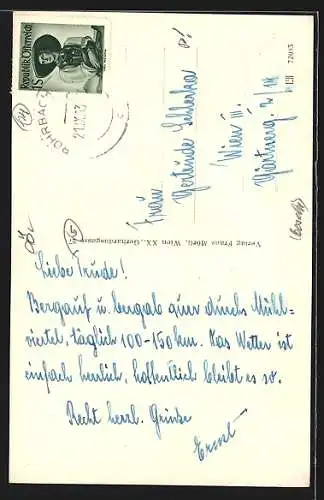 Republik Österreich
1 S
ROHRBACH
Frau
Gertrude
Wien III.
Gärtnerg. 2/14
72053
Verlag Frans Mörtl, Wien, XX., Gerhardusgasse
Liebe Trude!
Bergauf u. bergab quer durchs Mühl-
viertel, täglich 100-150 km. Das Wetter ist
einfach herrlich, hoffentlich bleibt es so.
Recht herzl. Grüße
Ernst